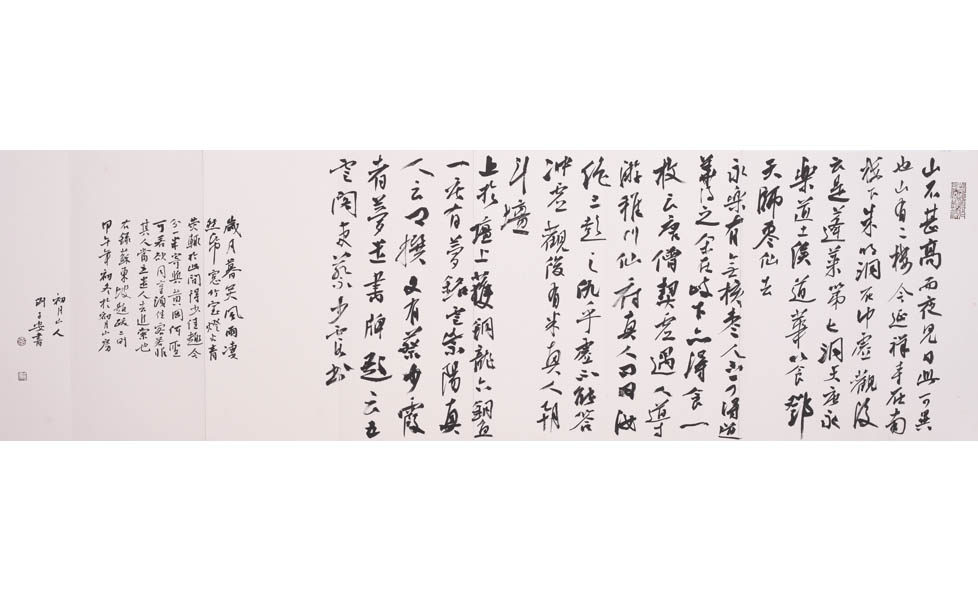 山不甚高而夜見日此可異
也山有二樓今延祥寺在南
樓下朱明洞在冲虛觀後
云是蓬萊第七洞天唐永
樂道士侯道華以食鄧
天師棗仙去
永樂有無核棗人不可得道
華得之余在岐下亦得食一
枚云唐僧契虛遇人導
游稚川仙府真人問曰汝
絕三彭之仇乎虛不能答
冲虛觀後有米真人朝
斗壇
上於壇上獲銅龍六銅魚
一唐有夢銘云紫陽真
人云卿撰又有蔡少霞
者夢遣書牌題云五
雲閣吏蔡少霞書
歲月暮矣風雨凄
然紙窗竹屋燈火青
熒輒於此間得少佳趣今
分一半寄與黃岡何聖
可若欲同享須佳客若非
其人當立遣人去追索也
右錄蘇東坡題跋二則
甲午年初冬於初月山房
初月山人